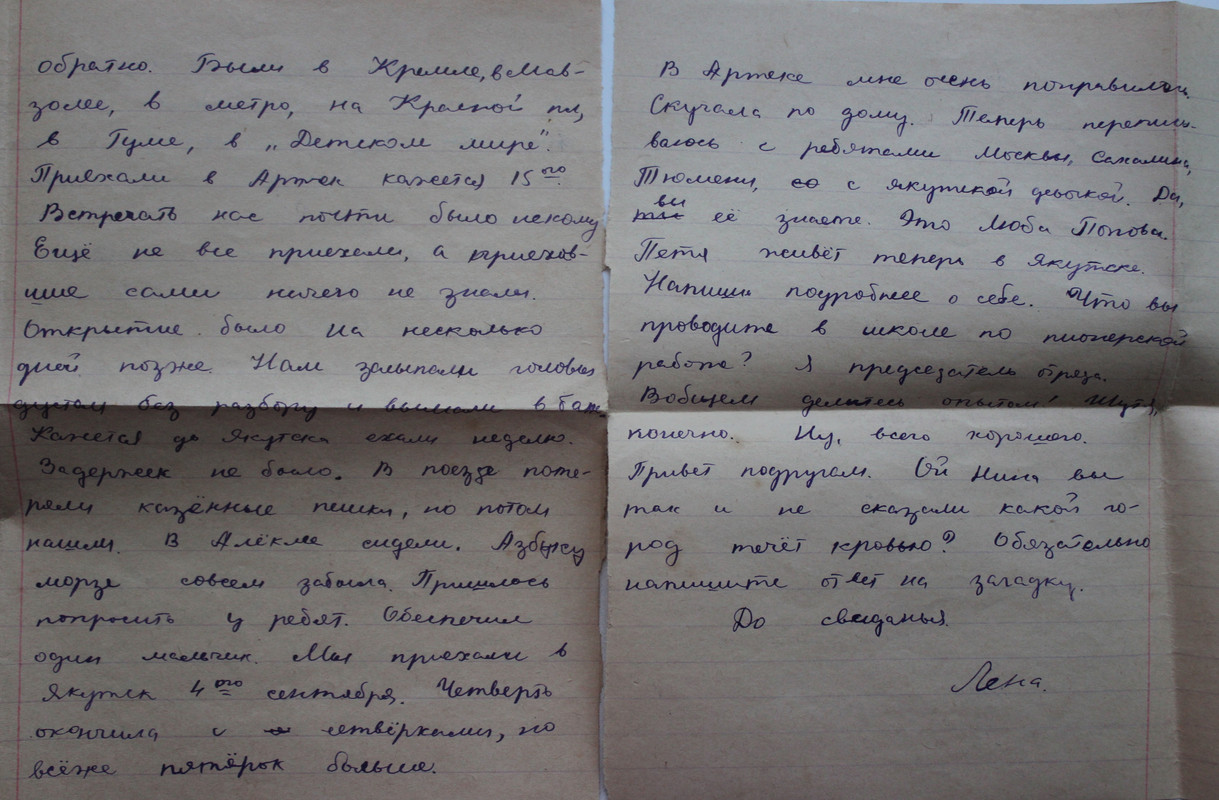 обратно. Были в Кремле, в Мав-
золее, в метро, на Красной пл,
в Гуме, в „Детском мире".
Приехали в Артек кажется 15ого.
Встречать нас почти было некому
Ещё не все приехали, а приехав-
шие сами ничего не знали.
Открытие было на несколько
дней позже. Нам засыпали головы
дустом без разбору и выгнали в баню
Кажется до Якутска ехали неделю.
Задержек не было. В поезде поте-
ряли казённые пешки, но потом
нашли. В Алёкме сидели. Азбуку
морзе совсем забыла. Пришлось
попросить у ребят. Обеспечил
один мальчик. Мы приехали в
Якутск 4ого сентября. Четверть
окончила с четвёрками, но
всёже пятёрок больше.
В Артеке мне очень понравилось.
Скучала по дому. Теперь переписы-
ваюсь с ребятами Москвы, Сахалина,
Тюмени, со с якутской девочкой. Да,
вы её знаете. Это Люба Попова.
Петя живёт теперь в Якутске.
Напиши подробнее о себе. Что вы
проводите в школе по пионерской
работе? Я председатель отряда.
Вобщем делитесь опытом! Шутя,
конечно. Ну, всего хорошего.
Привет подругам. Ой Нина вы
так и не сказали какой го-
род течёт кровью? Обязательно
напишите ответ на загадку.
До свиданья.
Лена.